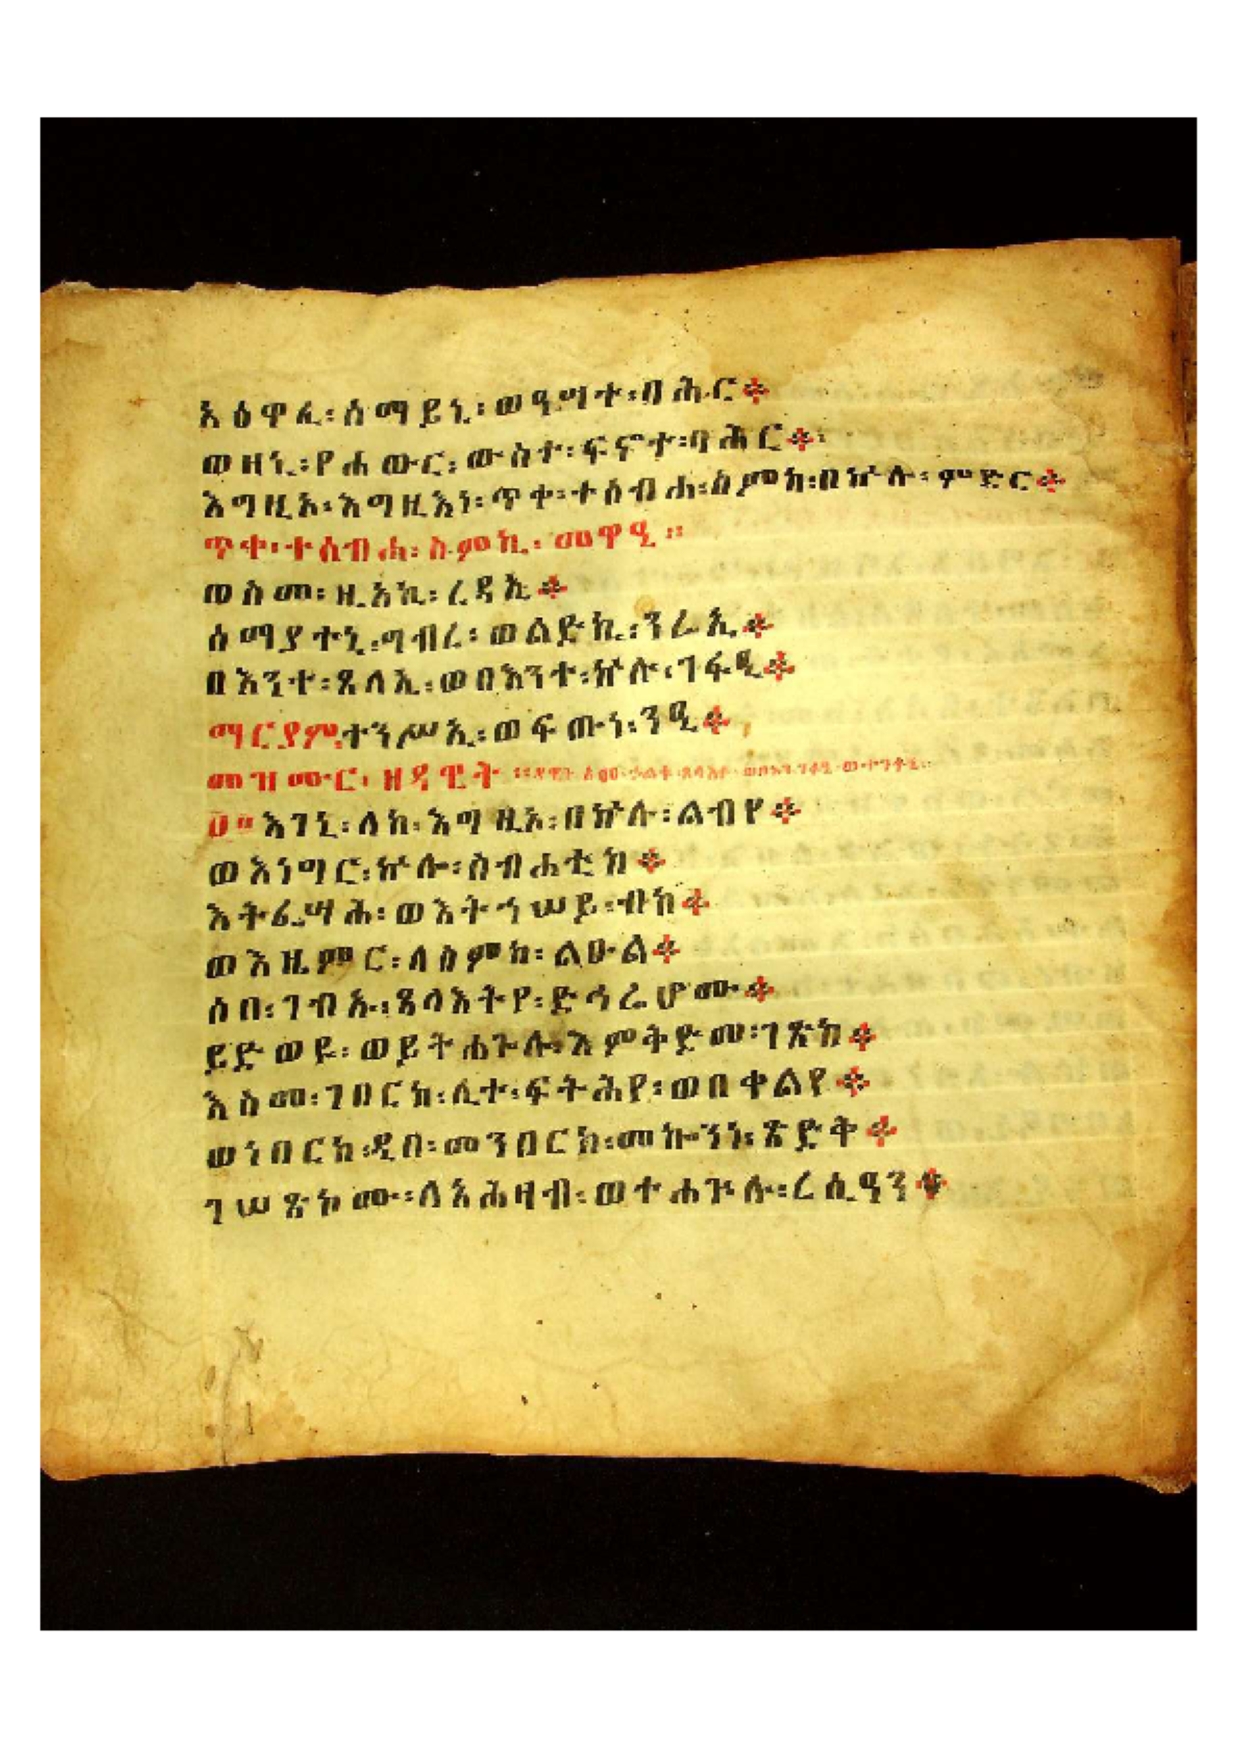 አዕዋፈ፡ሰማይኒ፡ወዓሣተ፡ባሕር፨
ወዘኒ፡የሐውር፡ውስተ፡ፍኖተ፡ባሕር፨
እግዚኦ፡እግዚእነ፡ጥቀ፡ተሰብሐ፡ስምከ፡በኵሉ፡ምድር፨
ጥቀ፡ተሰብሐ፡ስምኪ፡መዋዒ።
ወስመ፡ዚአኪ፡ረዳኢ፨
ሰማያተኒ፡ግብረ፡ወልድኪ፡ንሬኢ፨
በእንተ፡ጸላኢ፡ወበእንተ፡ኵሉ፡ገፋዒ፨
ማርያም፡ተንሥኢ፡ወፍጡነ፡ንዒ፨
መዝሙር፡ዘዳዊት።
፱። እገኒ፡ለከ፡እግዚኦ፡በኵሉ፡ልብየ፨
ወእነግር፡ኵሎ፡ስብሐቲከ፨
እትፌሣሕ፡ወእትኀሠይ፡ብከ፨
ወእዜምር፡ለስምከ፡ልዑል፨
ሶበ፡ገብኡ፡ጸላእትየ፡ድኅሬሆሙ፨
ይድወዩ፡ወይትሐጐሉ፡እምቅድመ፡ገጽከ፨
እስመ፡ገበርከ፡ሊተ፡ፍትሕየ፡ወበቀልየ፨
ወነበርከ፡ዲበ፡መንበርከ፡መኰንነ፡ጽድቅ፨
ገሠጽኮሙ፡ለአሕዛብ፡ወተሐጕሉ፡ረሲዓን፨